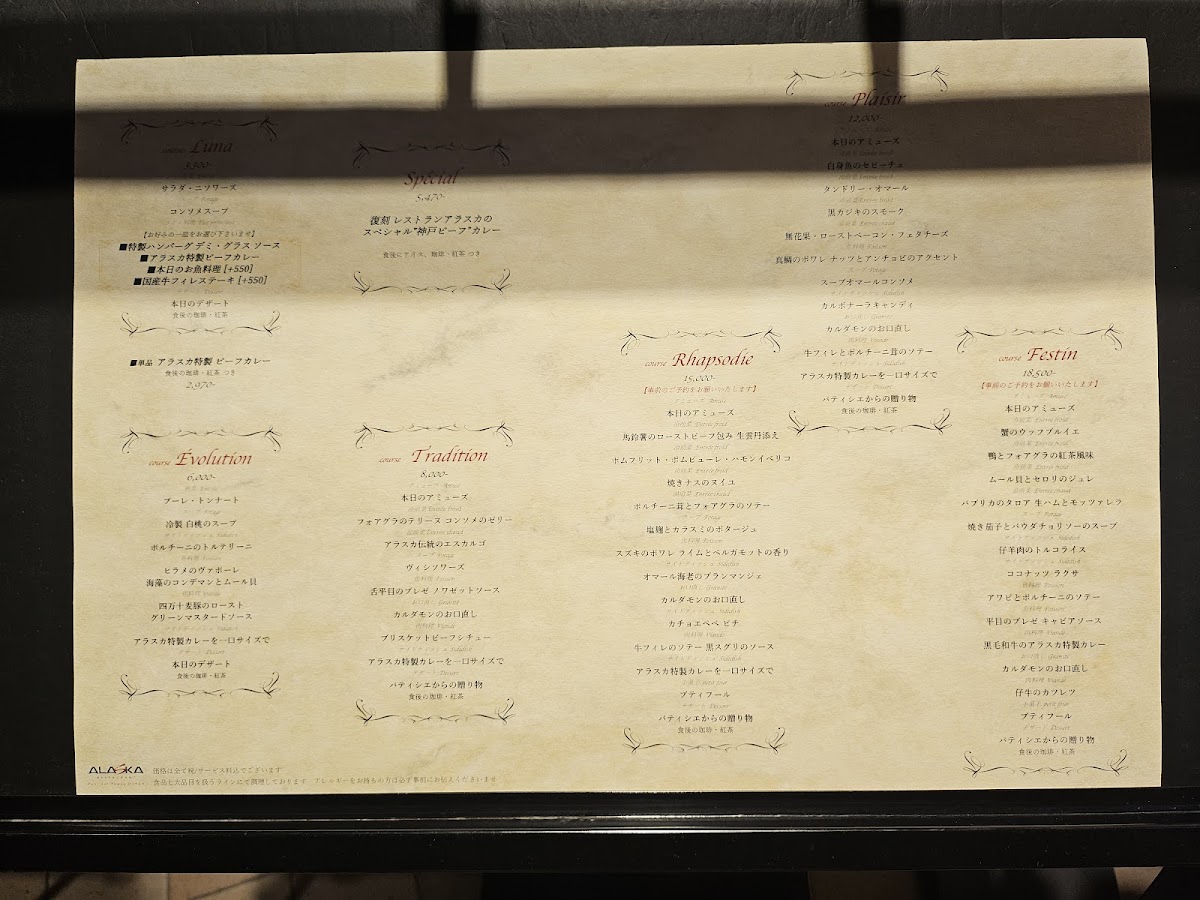 Luna
3,500-
サラダ・ニソワーズ
コンソメスープ
【お好みの一皿をお選び下さいませ】
■特製ハンバーグ デミ・グラス ソース
■アラスカ特製ビーフカレー
■本日のお魚料理 [+550]
■国産牛フィレステーキ [+550]
本日のデザート
食後の珈琲・紅茶
■単品 アラスカ特製 ビーフカレー
食後の珈琲・紅茶 つき
2,970-
Spécial
5,470-
復刻 レストランアラスカの
スペシャル"神戸ビーフ"カレー
食後にアイス、珈琲・紅茶 つき
course Évolution
6,000-
プーレ・トンナート
冷製 白桃のスープ
ポルチーニのトルテリーニ
ヒラメのヴァポーレ
海藻のコンデマンとムール貝
四万十麦豚のロースト
グリーンマスタードソース
アラスカ特製カレーを一口サイズで
本日のデザート
食後の珈琲・紅茶
course Tradition
8,000-
本日のアミューズ
フォアグラのテリーヌ コンソメのゼリー
アラスカ伝統のエスカルゴ
ヴィシソワーズ
舌平目のブレゼ ノワゼットソース
カルダモンのお口直し
ブリスケットビーフシチュー
アラスカ特製カレーを一口サイズで
パティシエからの贈り物
食後の珈琲・紅茶
course Plaisir
12,000-
本日のアミューズ
白身魚のセビーチェ
タンドリー・オマール
黒カジキのスモーク
無花果・ローストベーコン・フェタチーズ
真鯛のポワレ ナッツとアンチョビのアクセント
スープオマールコンソメ
カルボナーラキャンディ
カルダモンのお口直し
牛フィレとポルチーニ茸のソテー
アラスカ特製カレーを一口サイズで
パティシエからの贈り物
食後の珈琲・紅茶
course Rhapsodie
15,000-
【事前のご予約をお願いいたします】
本日のアミューズ
馬鈴薯のローストビーフ包み 生雲丹添え
ポムフリット・ポムピューレ・ハモンイベリコ
焼きナスのヌイユ
ポルチーニ茸とフォアグラのソテー
塩麹とカラスミのポタージュ
スズキのポワレ ライムとベルガモットの香り
オマール海老のブランマンジェ
カルダモンのお口直し
カチョエペペ ピチ
牛フィレのソテー 黒スグリのソース
アラスカ特製カレーを一口サイズで
プティフール
パティシエからの贈り物
食後の珈琲・紅茶
course Festin
18,500-
【事前のご予約をお願いいたします】
本日のアミューズ
蟹のウッフブルイエ
鴨とフォアグラの紅茶風味
ムール貝とセロリのジュレ
パプリカのタロア 生ハムとモッツァレラ
焼き茄子とパウダチョリソーのスープ
仔羊肉のトルコライス
ココナッツ ラクサ
アワビとポルチーニのソテー
平目のブレゼ キャビアソース
黒毛和牛のアラスカ特製カレー
カルダモンのお口直し
仔牛のカツレツ
プティフール
パティシエからの贈り物
食後の珈琲・紅茶
ALASKA
価格は全て税/サービス料込でございます
食品七大品目を扱うラインにて調理しております アレルギーをお持ちの方は必ず事前にお伝えくださいませ